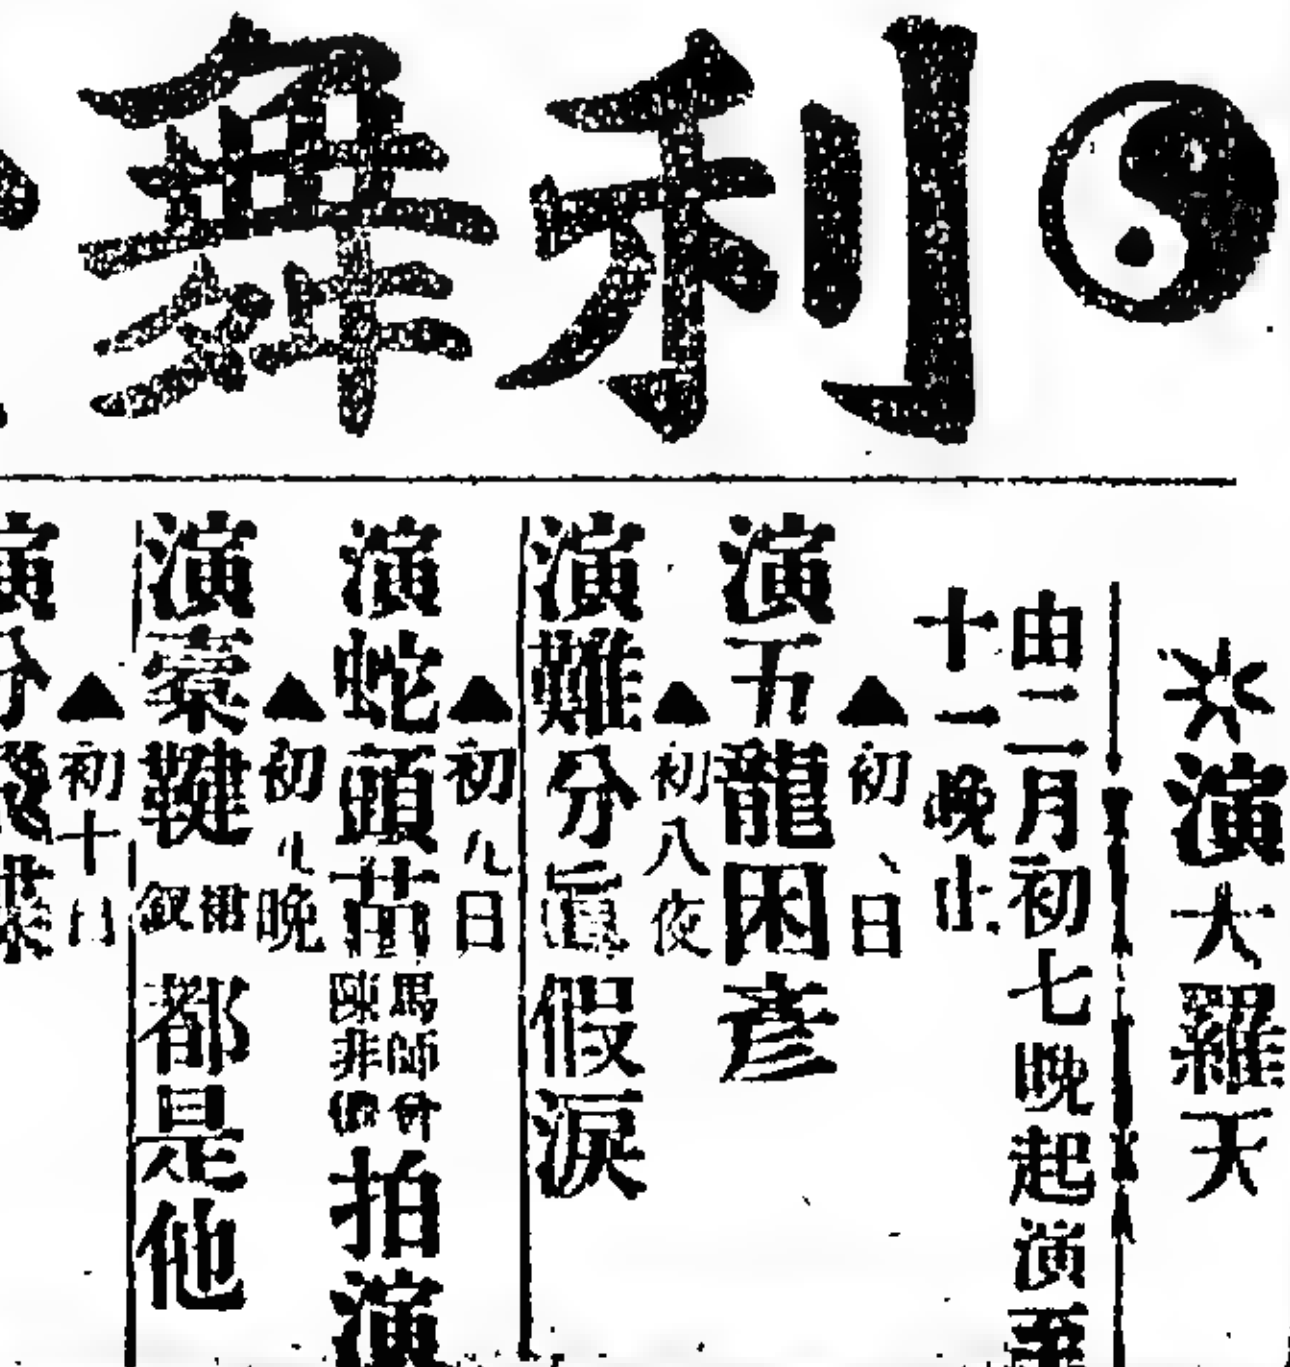 利舞
演大羅天
由二月初七晚起演至
十一晚止
初 日
演五龍困彥
初八夜
演難分眞假淚
初九日
演蛇頭苗 馬師 陳非儂 拍演
初九晚
演 鞬 都是他
初十日
演分